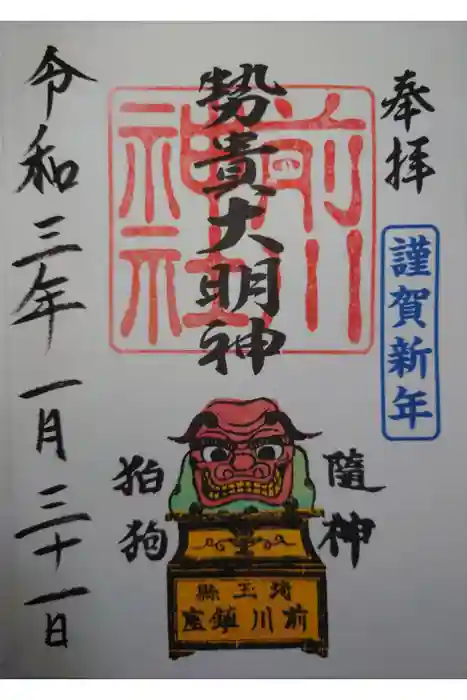 奉拝
謹賀新年
前川
神社
勢貴大明神
隨神
狛狗
埼玉縣
前川鎮座
令和三年一月三十一日